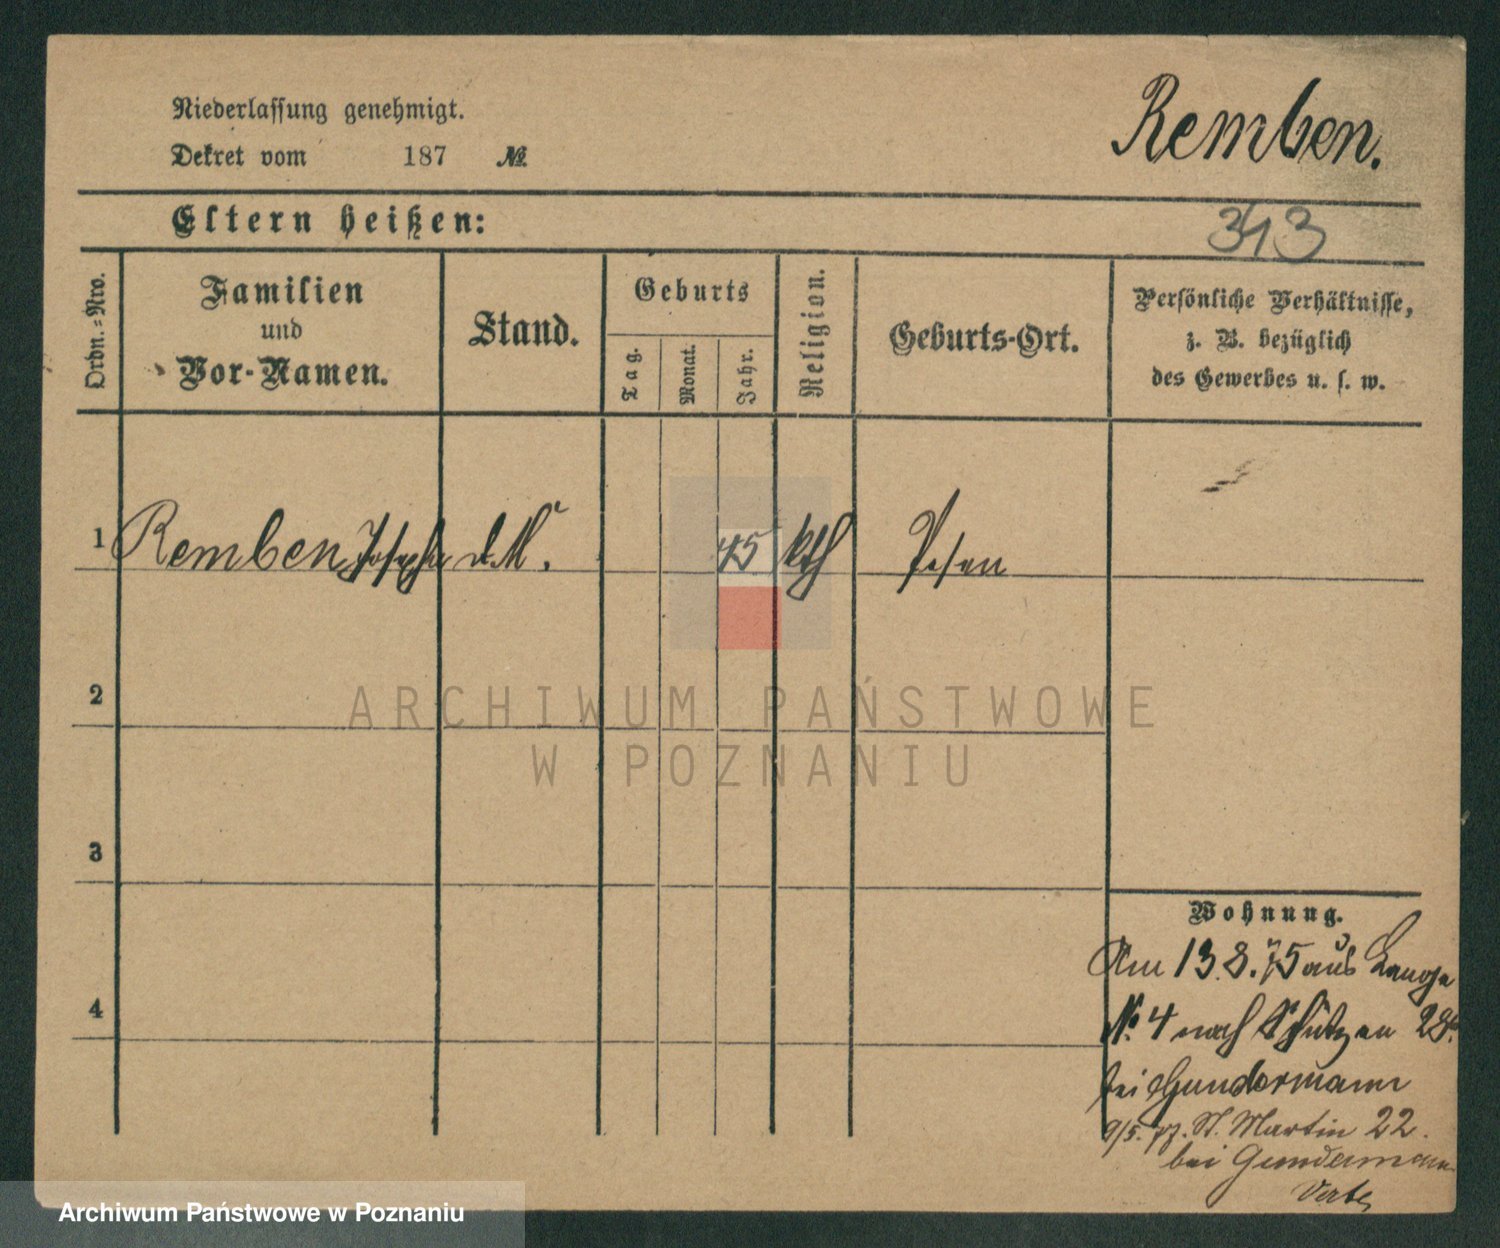 Niederlassung genehmigt.
Dekret vom 187 №
Remben.
Eltern heißen:
343
Ordn.=Nro.
Familien
und
Vor-Namen.
Stand.
Geburts
Tag.
Monat.
Jahr.
Religion.
Geburts-Ort.
Persönliche Verhältnisse,
z. B. bezüglich
des Gewerbes u. s. w.
1 Remben Josepha d. M. 45 kth Posen
2
ARCHIWUM PAŃSTWOWE
W POZNANIU
3
4
Wohnung.
Am 13.8.75 aus Lange
No. 4 nach Schützen
bei Gundermann
9/5. 77. St. Martin 22.
bei Gundermann
Archiwum Państwowe w Poznaniu